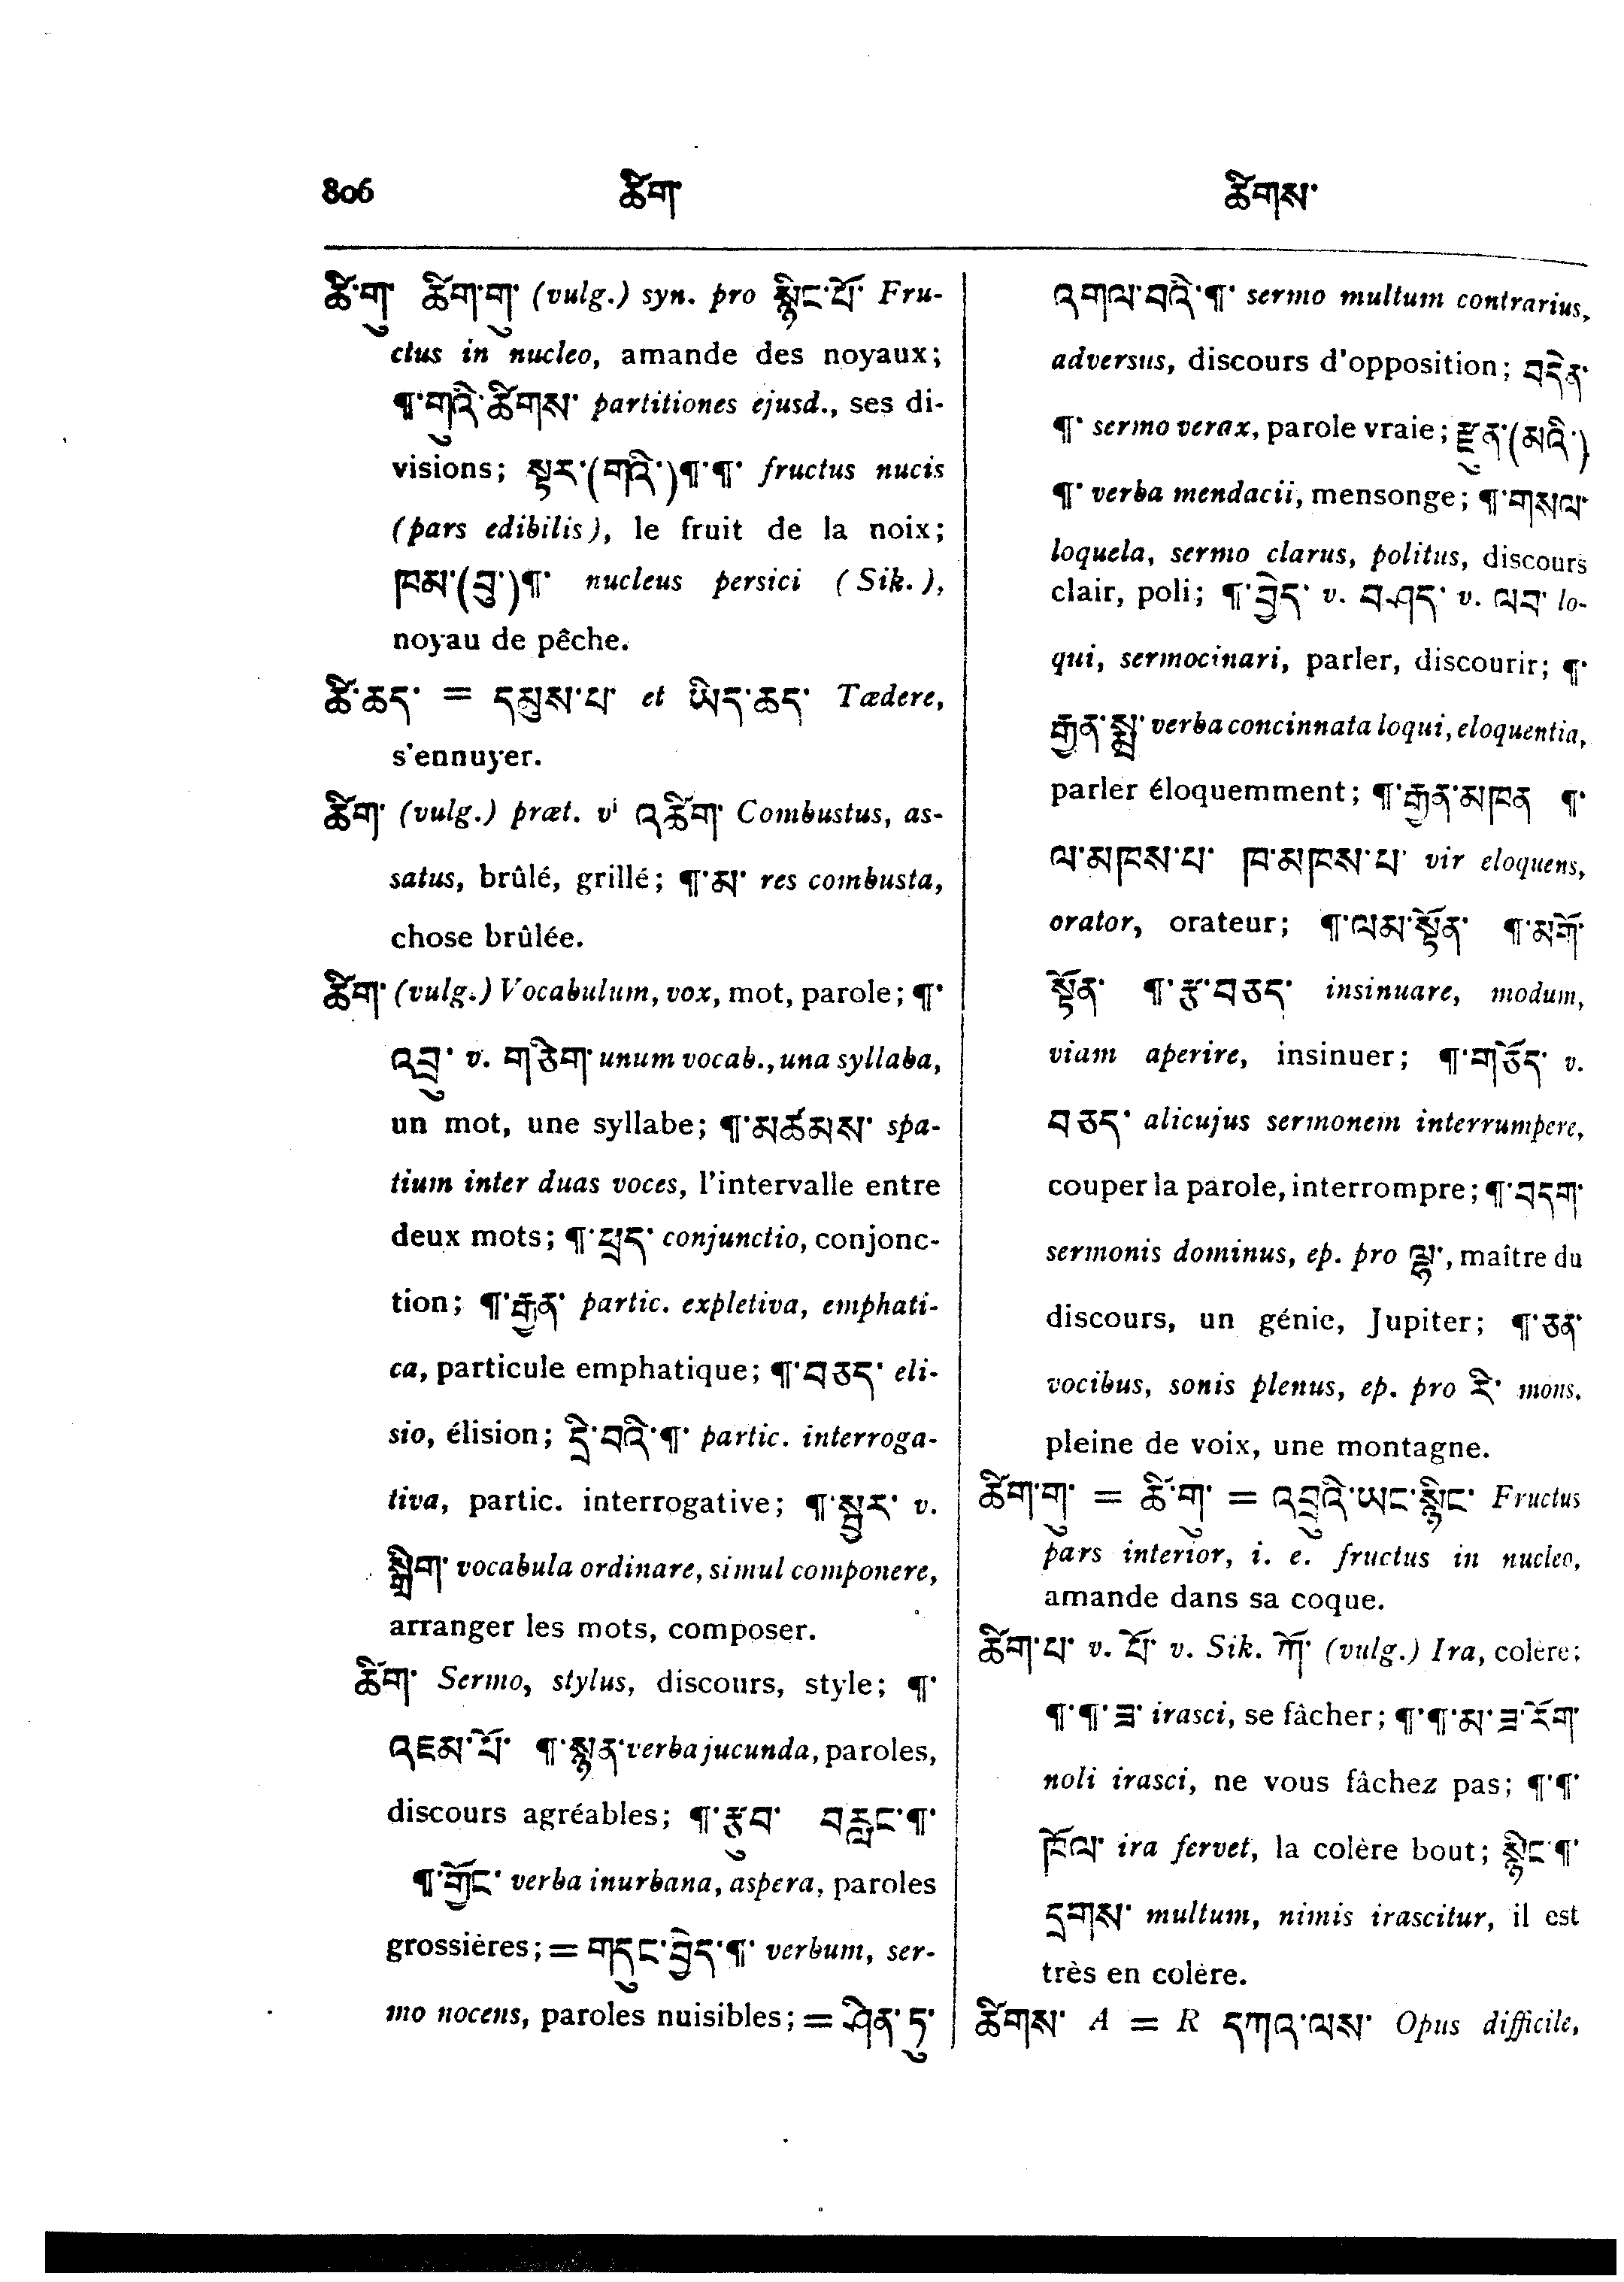 806 ཚིག་ ཚིགས་
ཚི་གུ་ ཚིག་གུ་ (vulg.) syn. pro སྙིང་པོ་ Fru-
ctus in nucleo, amande des noyaux;
¶་གུའི་ཚིགས་ partitiones ejusd., ses di-
visions; སྟར་(གའི་)¶་¶་ fructus nucis
(pars edibilis), le fruit de la noix;
ཁམ་(བུ་)¶་ nucleus persici (Sik.),
noyau de pêche.
ཚི་ཆད་ = དམུས་པ་ et ཡིད་ཆད་ Tædere,
s'ennuyer.
ཚིག་ (vulg.) præt. vⁱ འཚིག་ Combustus, as-
satus, brûlé, grillé; ¶་མ་ res combusta,
chose brûlée.
ཚིག་ (vulg.) Vocabulum, vox, mot, parole; ¶་
འབྲུ་ v. གཅིག་ unum vocab., una syllaba,
un mot, une syllabe; ¶་མཚམས་ spa-
tium inter duas voces, l'intervalle entre
deux mots; ¶་ཕྲད་ conjunctio, conjonc-
tion; ¶་རྒྱན་ partic. expletiva, emphati-
ca, particule emphatique; ¶་བཅད་ eli-
sio, élision; དྲི་བའི་¶་ partic. interroga-
tiva, partic. interrogative; ¶་སྦྱར་ v.
སྒྲིག་ vocabula ordinare, simul componere,
arranger les mots, composer.
ཚིག་ Sermo, stylus, discours, style; ¶་
འཇམ་པོ་ ¶་སྙན་ verba jucunda, paroles,
discours agréables; ¶་རྩུབ་ བརླང་¶་
¶་གྱོང་ verba inurbana, aspera, paroles
grossières; = གདུང་བྱེད་¶་ verbum, ser-
mo nocens, paroles nuisibles; = ཤིན་ཏུ་
འགལ་བའི་¶་ sermo multum contrarius,
adversus, discours d'opposition; བདེན་
¶་ sermo verax, parole vraie; རྫུན་(མའི་)
¶་ verba mendacii, mensonge; ¶་གསལ་
loquela, sermo clarus, politus, discours
clair, poli; ¶་བྱེད་ v. བཤད་ v. ལབ་ lo-
qui, sermocinari, parler, discourir; ¶་
རྒྱན་སྨྲ་ verba concinnata loqui, eloquentia,
parler éloquemment; ¶་རྒྱན་མཁན ¶་
ལ་མཁས་པ་ ཁ་མཁས་པ་ vir eloquens,
orator, orateur; ¶་ལམ་སྟོན་ ¶་མགོ་
སྟོན་ ¶་རྩ་བཅད་ insinuare, modum,
viam aperire, insinuer; ¶་གཅོད་ v.
བཅད་ alicujus sermonem interrumpere,
couper la parole, interrompre; ¶་བདག་
sermonis dominus, ep. pro ལྷ་, maître du
discours, un génie, Jupiter; ¶་ཅན་
vocibus, sonis plenus, ep. pro རི་ mons,
pleine de voix, une montagne.
ཚིག་གུ་ = ཚི་གུ་ = འབྲུའི་ཡང་སྙིང་ Fructus
pars interior, i. e. fructus in nucleo,
amande dans sa coque.
ཚིག་པ་ v. པོ་ v. Sik. ཀོ་ (vulg.) Ira, colère;
¶་¶་ཟ་ irasci, se fâcher; ¶་¶་མ་ཟ་རོག་
noli irasci, ne vous fâchez pas; ¶་¶་
ཁོལ་ ira fervet, la colère bout; སྙིང་¶་
དྲགས་ multum, nimis irascitur, il est
très en colère.
ཚིགས་ A = R དཀའ་ལས་ Opus difficile,